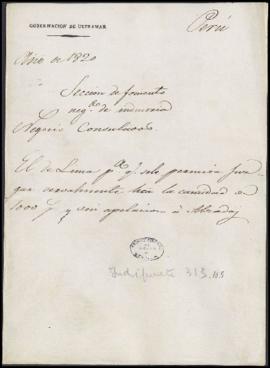 GOBERNACION DE ULTRAMAR
Perú
Año de 1820
Seccion de fomento
neg.do de industria
Negocio Consulados
El de Lima p.a q.e se le permita juz-
gar verbalmente hta la cantidad de
1000 p.s y sin apelacion á Alzadas
Indiferente 313